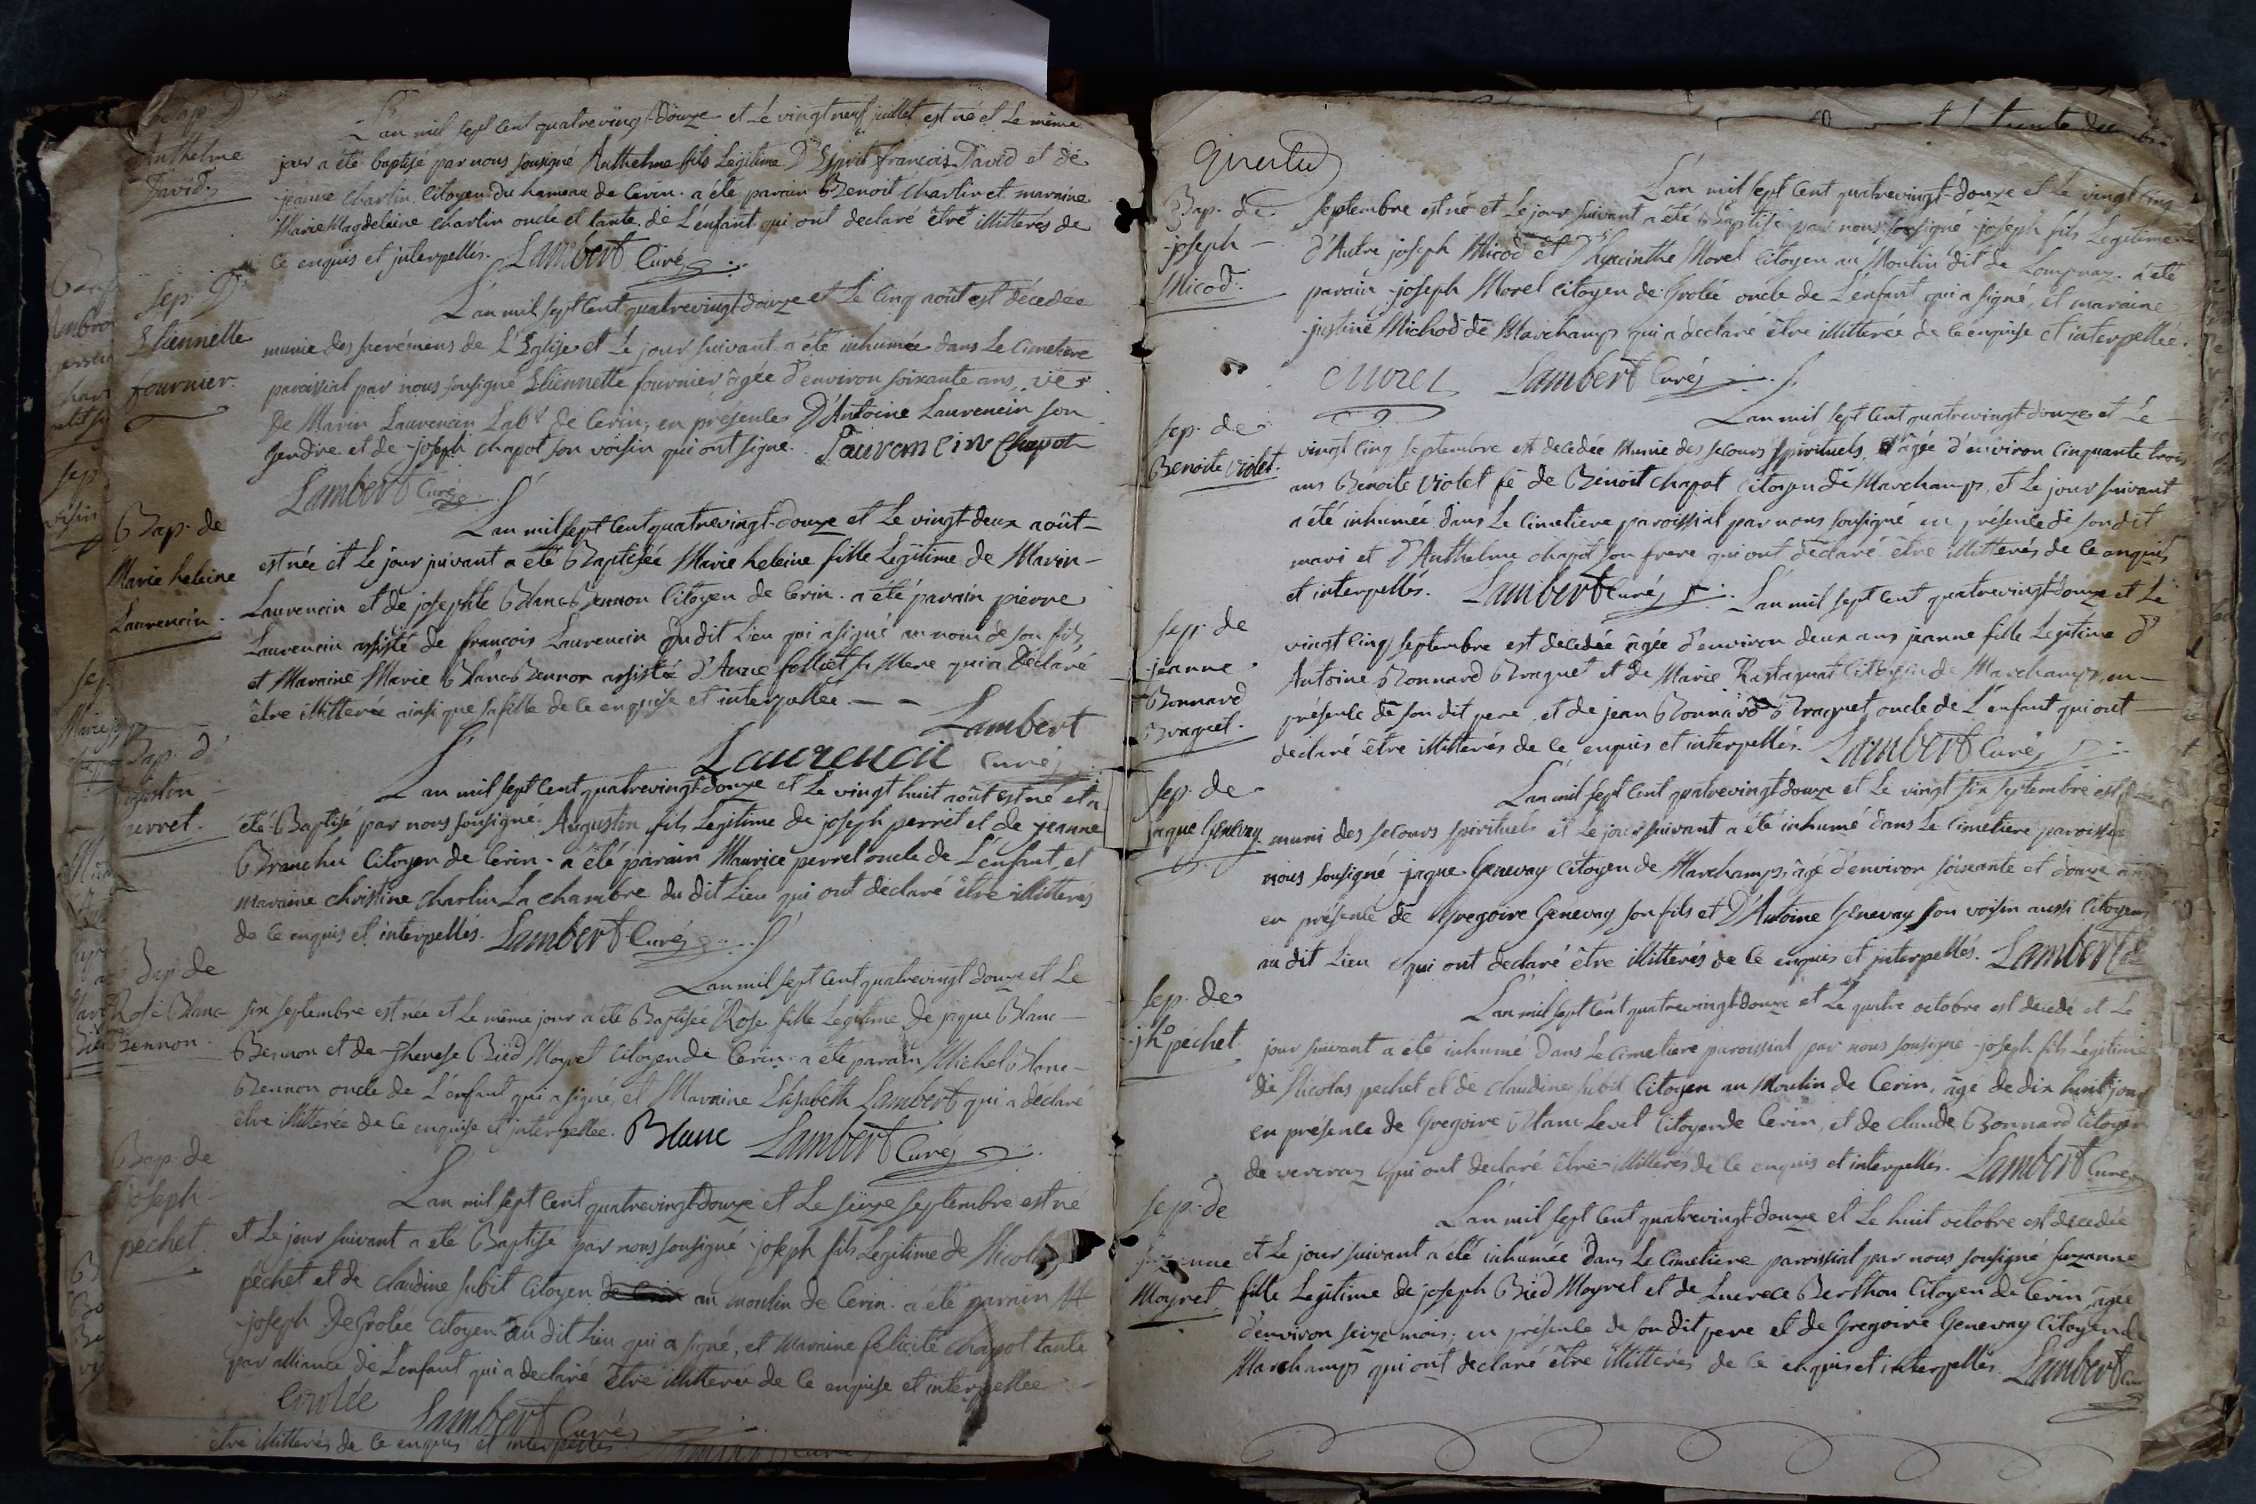 Bap. d'
Anthelme
David.
L'an mil sept cent quatrevingt-douze et Le vingt neuf juillet est né et Le même
jour a été baptisé par nous sousigné Anthelme fils Legitime D'Esprit françois David et de
jeanne Charlin Citoyen du hameau de Cerin. a été parain Benoit Charlin et maraine
Marie Magdelaine Charlin oncle et tante de L'enfant qui ont declaré être illitterés de
ce enquis et interpellés. Lambert Curé
Sep. D'
Etiennette
fournier.
L'an mil sept cent quatrevingt-douze et Le cinq août est décedée
munie des sacrémens de L'Eglise et Le jour suivant a été inhumée dans Le Cimetiere
paroissial par nous sousigné Etiennette fournier âgée d'environ soixante ans
De Marin Laurencin Labr de Cerin, en présence D'Antoine Laurencin son
gendre et de joseph chapot son voisin qui ont signé. Laurencin Chapot
Lambert Curé
Bap. de
Marie heleine
Laurencin.
L'an mil sept cent quatrevingt-douze et Le vingt-deux août
est née et Le jour suivant a été Baptisée Marie heleine fille Legitime de Marin
Laurencin et de josephte Blanc Bennon Citoyen de Cerin. a été parain pierre
Laurencin assisté de françois Laurencin du dit Lieu qui a signé au nom de son fils
et Maraine Marie Blanc Bennon assistée d'Anne folliet sa Mere qui a déclaré
être illitterée ainsi que sa fille de ce enquise et interpellée
Lambert
Laurencin Curé
Bap. d'
Augustin
perret.
L'an mil sept cent quatrevingt-douze et Le vingt huit août est né et a
été Baptisé par nous sousigné. Augustin fils Legitime de joseph perret et de jeanne
Branchu Citoyen de Cerin. a été parain Maurice perret oncle de L'enfant, et
maraine christine charlin La chambre du dit Lieu qui ont declaré être illitterés
de ce enquis et interpellés. Lambert Curé
Bap. de
Rose Blanc
Bennon.
L'an mil sept cent quatrevingt douze et Le
six septembre est née et Le même jour a été Baptisée Rose fille Legitime De jâque Blanc
Bennon et de Therese Biid Moyret Citoyen de Cerin. a été parain Michel Blanc
Bennon oncle de L'enfant qui a signé, et Maraine Elisabeth Lambert qui a declaré
être illitterée de ce enquise et interpellée. Blanc Lambert Curé
Bap. de
joseph
pechet.
L'an mil sept cent quatrevingt-douze et Le seize septembre est né
et Le jour suivant a été Baptisé par nous sousigné joseph fils Legitime de Nicolas
pêchet et de claudine subit Citoyen de Cerin au moulin de Cerin. a été parain
joseph De Grolée Citoyen au dit Lieu qui a signé, et Maraine felicité chapot tante
par alliance de L'enfant qui a declaré être illitterée de ce enquise et interpellée
Grolée Lambert Curé
être illitterés de ce enquis et interpellés
Bap. de
joseph
Micod.
L'an mil sept cent quatrevingt-douze et Le vingt cinq
septembre est né et Le jour suivant a été Baptisé par nous sousigné joseph fils Legitime
d'Autre joseph Micod et D'hyacinthe Morel Citoyen au Moulin dit de Lompnaz. a été
parain joseph Morel Citoyen de Grolée oncle de L'enfant, qui a signé, et maraine
justine Michod de Marchamp qui a declaré être illitterée de ce enquise et interpellée.
Lambert Curé
Sep. de
Benoite violet.
L'an mil sept cent quatrevingt-douze et Le
vingt cinq septembre est decedée munie des secours spirituels âgée d'environ cinquante trois
ans Benoite violet fe de Benoit chapot Citoyen de Marchamp, et Le jour suivant
a été inhumée dans Le Cimetiere paroissial par nous sousigné en présence de son dit
mari et D'Anthelme chapot son frere qui ont declaré être illitterés de ce enquis
et interpellés. Lambert Curé
Sep. de
jeanne
Bonnard
Braguet.
L'an mil sept cent quatrevingt-douze et Le
vingt cinq septembre est decedée âgée d'environ deux ans jeanne fille Legitime d'
Antoine Bonnard Braguet et de Marie Rastagnat Citoyen de Marchamp, en
présence de son dit pere et de jean Bonnard Braguet oncle de L'enfant qui ont
declaré être illitterés de ce enquis et interpellés. Lambert Curé
Sep. de
jaque Genevay.
L'an mil sept cent quatrevingt-douze et Le vingt six septembre est
muni des secours spirituels et Le jour suivant a été inhumé dans Le Cimetiere
nous sousigné jaque Genevay Citoyen de Marchamp, âgé d'environ soixante et douze ans
en présence de Gregoire Genevay son fils et D'Antoine Genevay son voisin aussi Citoyens
au dit Lieu qui ont declaré être illitterés de ce enquis et interpellés. Lambert
Sep. de
jh pêchet
L'an mil sept cent quatrevingt-douze et Le quatre octobre est decedé et Le
jour suivant a été inhumé dans Le Cimetiere paroissial par nous sousigné joseph fils Legitime
de Nicolas pechet et de claudine subit Citoyen au Moulin de Cerin, âgé de dix huit jours
en présence de Gregoire Blanc Levet Citoyen de Cerin, et de claude Bonnard Citoyen
de verciras qui ont declaré être illitterés de ce enquis et interpellés. Lambert Curé
Sep. de
suzanne
Moyret.
L'an mil sept cent quatrevingt-douze et Le huit octobre est decedée
et Le jour suivant a été inhumée dans Le Cimetiere paroissial par nous sousigné suzanne
fille Legitime de joseph Biid Moyret et de Lucrece Berthon Citoyen de Cerin âgée
d'environ seize mois; en présence de son dit pere et de Gregoire Genevay Citoyen de
Marchamp qui ont declaré être illitterés de ce enquis et interpellés. Lambert